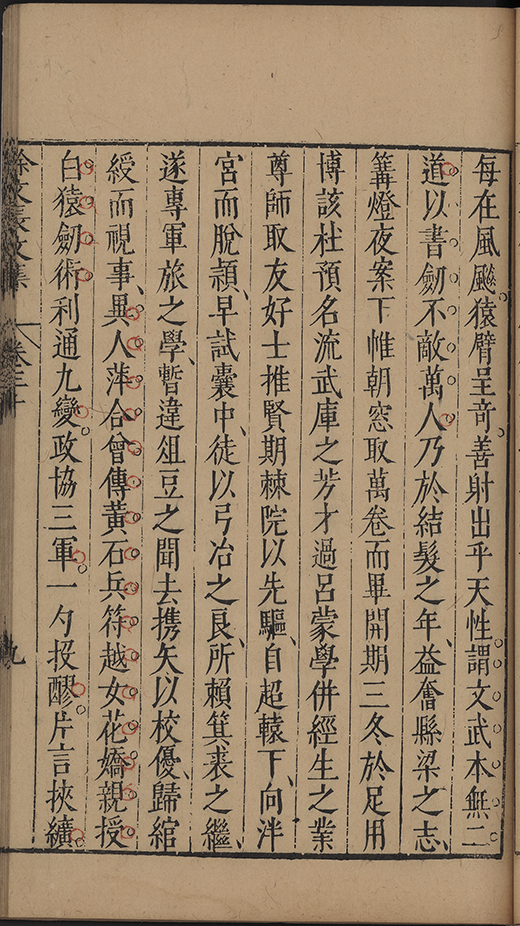 每在風飈猿臂呈竒善射出乎天性謂文武本無二
道以書劒不敵萬人乃於結髮之年益奮縣梁之志
篝燈夜案下帷朝窓取萬卷而畢開期三冬於足用
博該杜預名流武庫之芳才過呂蒙學併經生之業
尊師取友好士推賢期棘院以先驅自超轅下向泮
宮而脫頴早試囊中徒以弓冶之良所賴箕裘之繼
遂專軍旅之學暫違俎豆之聞去携矢以校優歸綰
綬而視事異人萍合曾傳黃石兵符越女花嬌親授
白猿劒術利通九變政協三軍一勺投醪片言挾纊
徐文長文集 卷三十 九